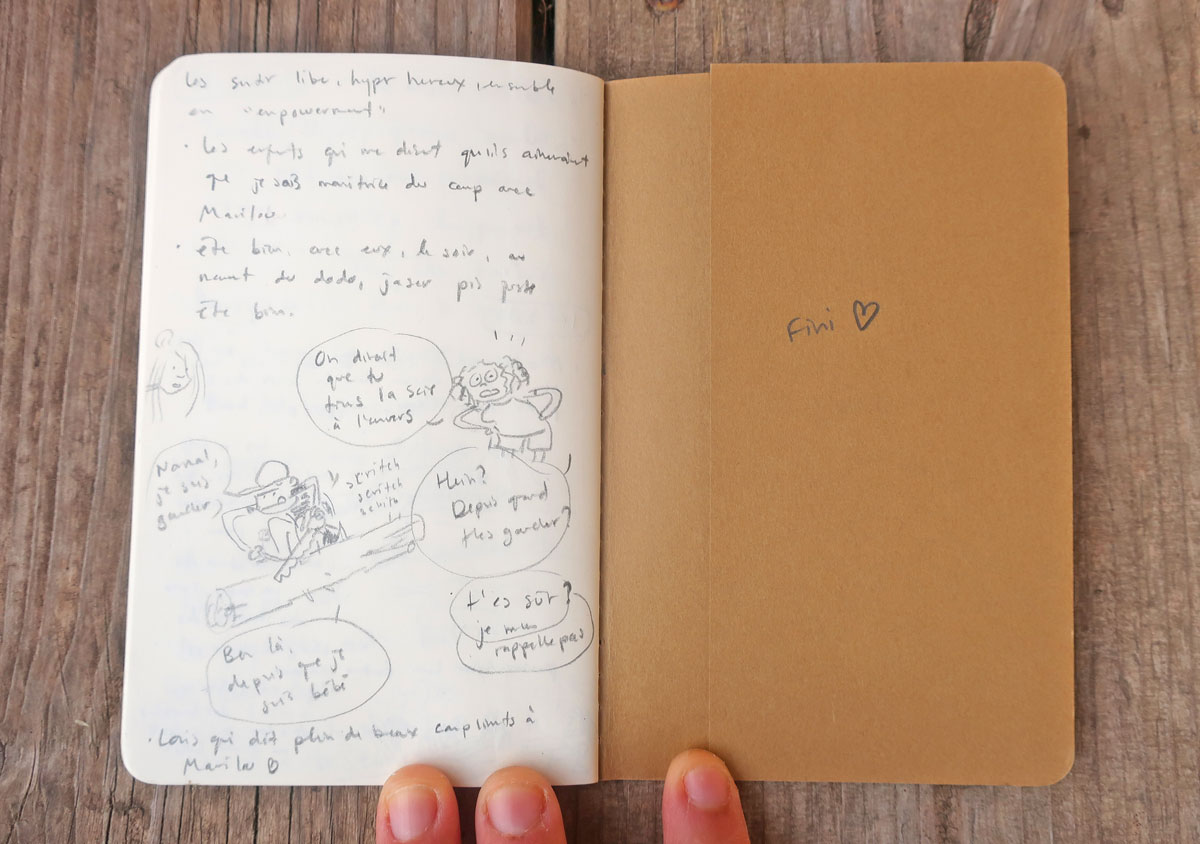 les sentir libe, hypr hereux, ensemble
en "empowerment"
· Les enfants qui me disent qu'ils aimeraient
que je sois monitrice du camp avec
Marilou
· être bien avec eux, le soir, au
moment du dodo, jaser pis juste
être bien.
On dirait
que tu
tiens la scie
à l'envers
Nonon,
je suis
gaucher
scritch
scritch
scritch
Hein?
Depuis quand
t'es gaucher?
Ben là,
depuis que je
suis bébé
t'es sûr?
je me
rappelle pas
· Loïs qui dit plein de beaux compliments à
Marilou ♡
Fini ♡